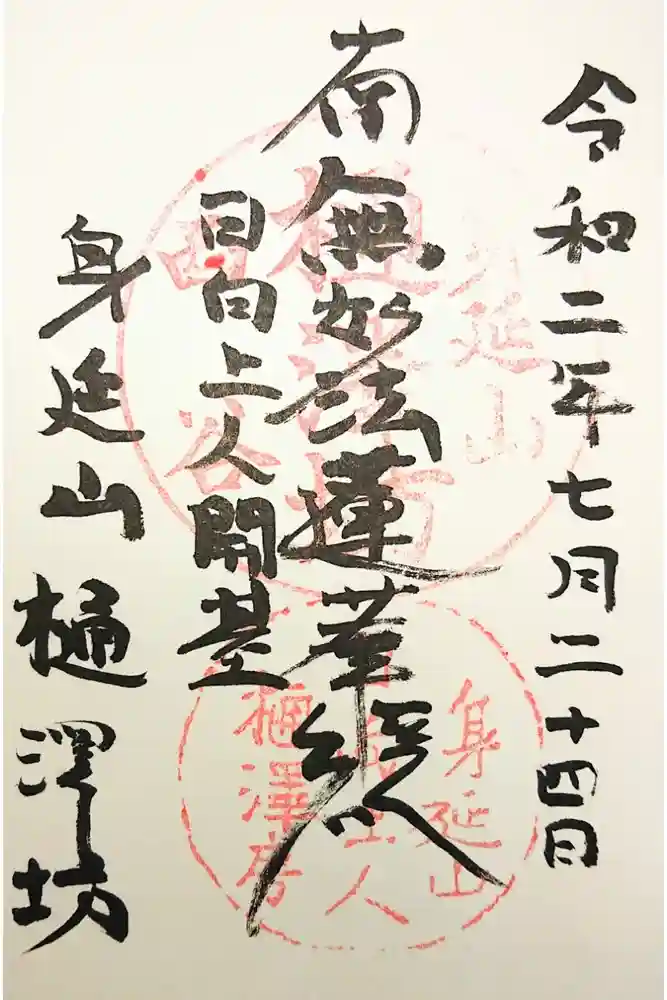 令和二年七月二十四日
南無妙法蓮華経
日向上人開基
身延山 樋澤坊
身延山
樋澤坊
西谷
身延山
日向上人
樋澤房